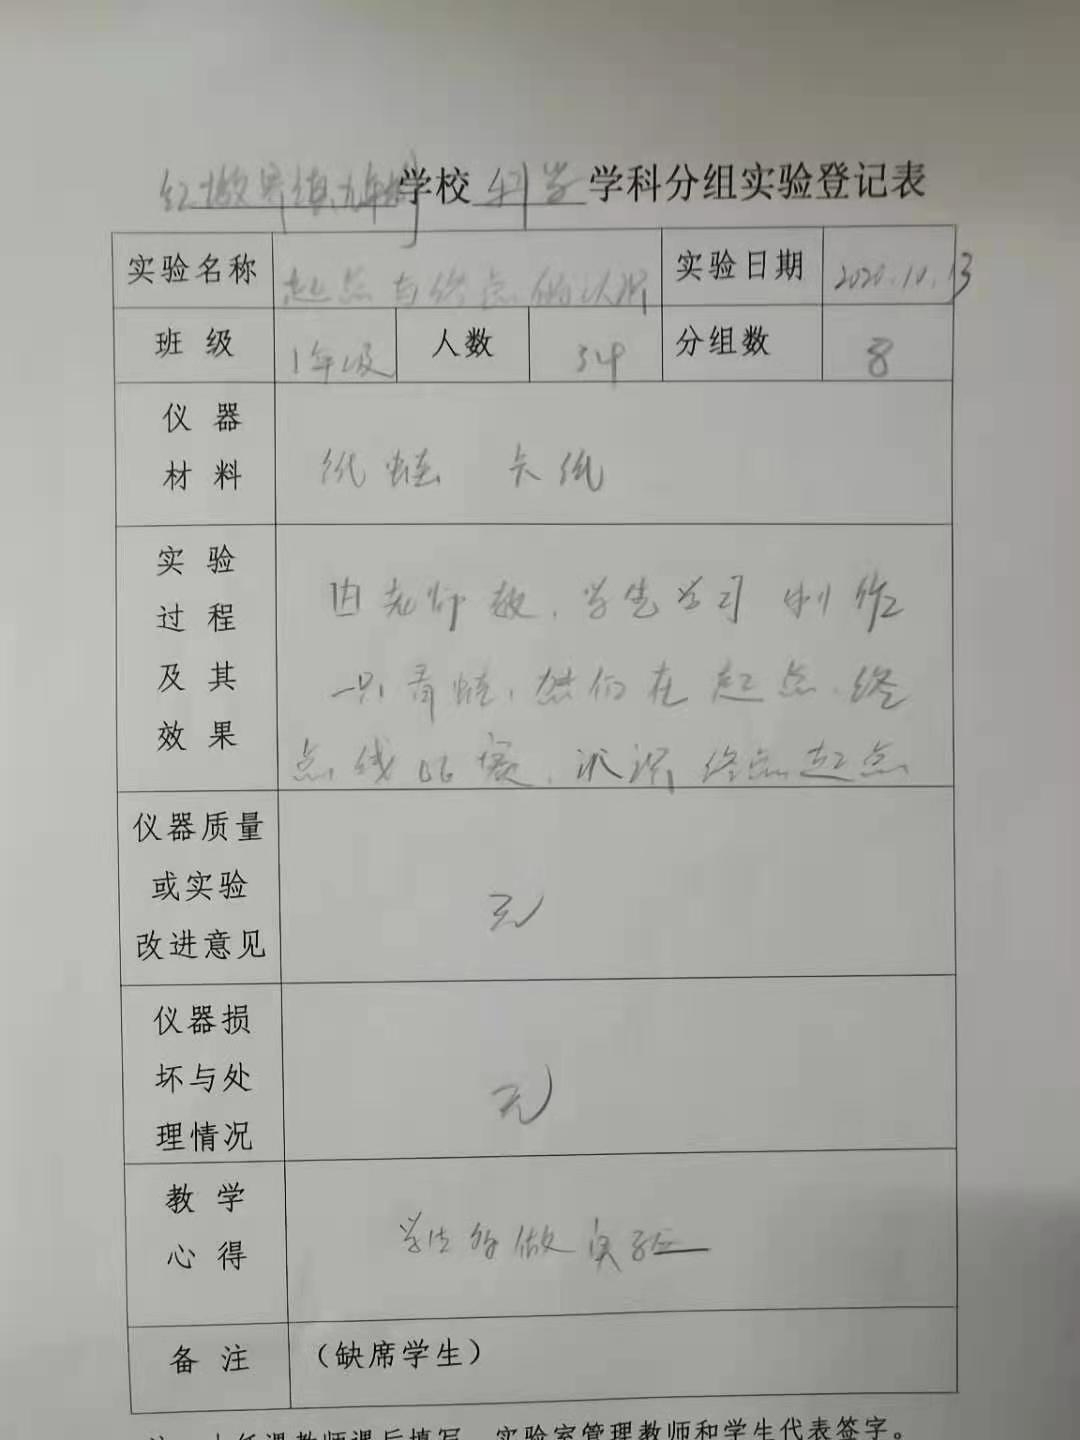 学校 科学 学科分组实验登记表
实验名称 起点与终点的认识 实验日期 2020.10.13
班 级 1年级 人数 34 分组数 8
仪 器
材 料
纸蛙 卡纸
实 验
过 程
及 其
效 果
由老师教,学生学习制作
一只青蛙,然们在起点、终
点线比赛,认识终点起点
仪器质量
或实验
改进意见
无
仪器损
坏与处
理情况
无
教 学
心 得
学生 做实验
备 注 (缺席学生)
任课教师课后填写,实验室管理教师和学生代表签字。